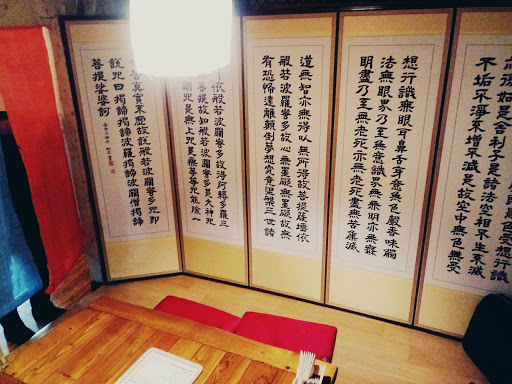 受想行識
亦復如是舍利子是諸法空相不生不滅
不垢不淨不增不減是故空中無色無受
想行識無眼耳鼻舌身意無色聲香味觸
法無眼界乃至無意識界無無明亦無無
明盡乃至無老死亦無老死盡無苦集滅
道無智亦無得以無所得故菩提薩埵依
般若波羅蜜多故心無罣礙無罣礙故無
有恐怖遠離顛倒夢想究竟涅槃三世諸
依般若波羅蜜多故得阿耨多羅三
菩提故知般若波羅蜜多是大神咒
明咒是無上咒是無等等咒能除一
苦真實不虛故說般若波羅蜜多咒即
說咒曰揭諦揭諦波羅揭諦波羅僧揭諦
菩提娑婆訶